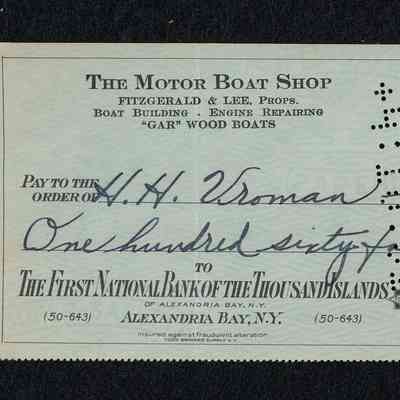 THE MOTOR BOAT SHOP
FITZGERALD & LEE, PROPS.
BOAT BUILDING - ENGINE REPAIRING
"GAR" WOOD BOATS
PAY TO THE
ORDER OF H. H. Vroman
One hundred sixty
TO
THE FIRST NATIONAL BANK OF THE THOUSAND ISLANDS
OF ALEXANDRIA BAY, N.Y.
(50-643) ALEXANDRIA BAY, N.Y. (50-643)
insured against fraudulent alteration